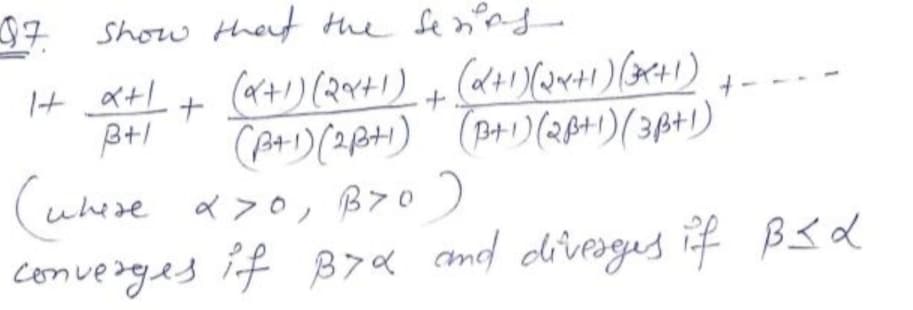 Q7. Show that the Series
1+ α+1/β+1 + (α+1)(2α+1)/(β+1)(2β+1) + (α+1)(2α+1)(3α+1)/(β+1)(2β+1)(3β+1) + - - - -
(where α > 0, β > 0)
converges if β > α and diverges if β ≤ α